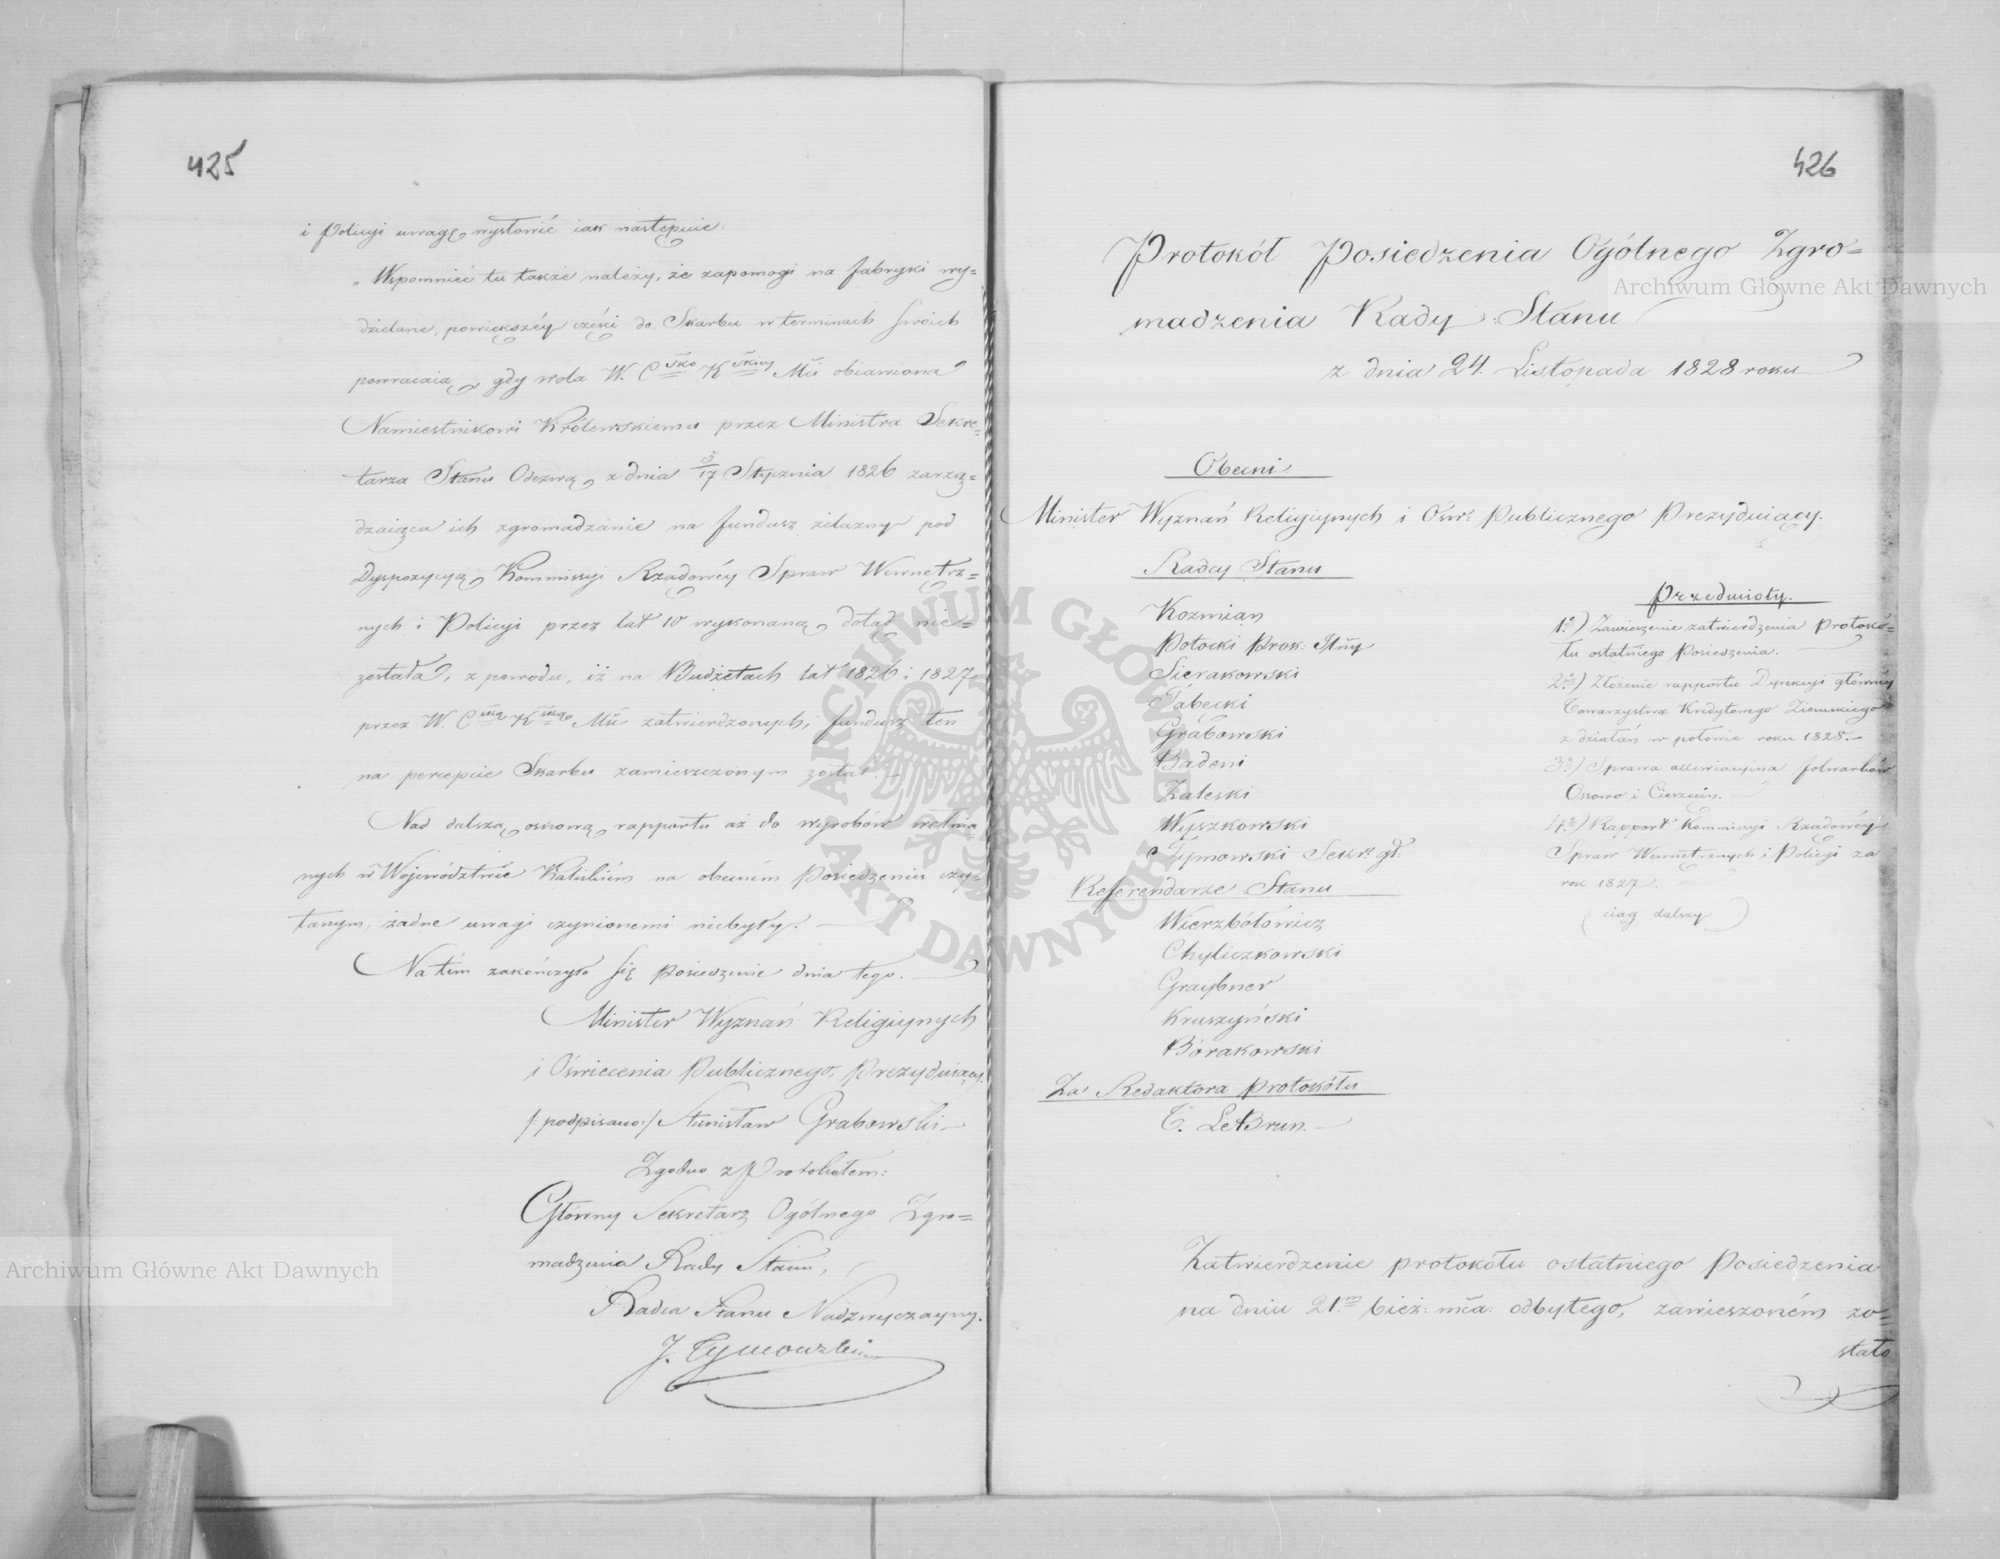 425
i Policyi uwagę wysłowić iak następuie:
„Wspomnieć tu także należy, że zapomogi na fabryki wy=
dzielane, powiększéy części do Skarbu w terminach swoich
powracaią, gdy wola W. Csko Kskiey Mci obiawiona
Namiestnikowi Królewskiemu przez Ministra Sekre=
tarza Stanu Odezwą z dnia 5/17 Stycznia 1826 zarzą=
dzaiąca ich zgromadzanie na fundusz żelazny pod
Dyspozycyą Kommissyi Rządowéy Spraw Wewnętrz=
nych i Policyi przez lat 10 wykonaną dotąd nie=
została, z powodu, iż na Budżetach lat 1826 i 1827
przez W. Cską Kską Mć zatwierdzonych, fundusz ten
na percepcie Skarbu zamieszczonym został.—
Nad dalszą osnową rapportu aż do wyrobów wełnia
nych w Województwie Kaliskiém na obecném Posiedzeniu czy=
tanym, żadne uwagi czynionemi niebyły.—
Na tém zakończyło się posiedzenie dnia tego.—
Minister Wyznań Religiynych
i Oświecenia Publicznego, Prezyduiący.
/: podpisano:/ Stanisław Grabowski—
Zgodno z Protokołem:
Główny Sekretarz Ogólnego Zgro=
madzenia Rady Stanu,
Radca Stanu Nadzwyczayny.
J. Tymowski
426
Protokół Posiedzenia Ogólnego Zgro=
madzenia Rady Stanu
z dnia 24. Listopada 1828 roku
Obecni
Minister Wyznań Religiynych i Ośw: Publicznego Prezyduiący.
Radcy Stanu
Kozmian
Potocki Prok:
Sierakowski
Tabęcki
Grabowski
Badeni
Zaleski
Wyszkowski
Tymowski Sekr: gł:
Referendarze Stanu
Wierzbołowicz
Chyliczkowski
Graybner
Kruszyński
Borakowski
Za Redaktora protokółu
T. LeBrun.—
Przedmioty.
1o) Zawieszenie zatwierdzenia protokó=
łu ostatniego Posiedzenia.—
2o) Złożenie rapportu Dyrekcyi głównéy
Towarzystwa Kredytowego Ziemskiego
z działań w połowie roku 1828.—
3o) Sprawa folwarków
Ossowo i
4o) Rapport Kommissyi Rządowéy
Spraw Wewnętrznych i Policyi za
rok 1827.
(ciąg dalszy)
Zatwierdzenie protokółu ostatniego Posiedzenia
na dniu 21m bież: mca: odbytego, zawieszoném zo=
stało
Archiwum Główne Akt Dawnych
Archiwum Główne Akt Dawnych
ARCHIWUM GŁÓWNE AKT DAWNYCH